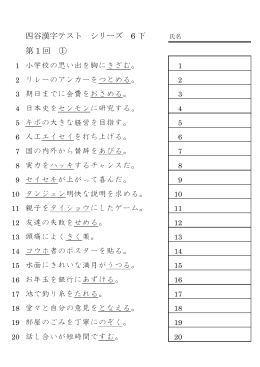 四谷漢字テスト シリーズ 6下 氏名
第1回 ①
1 小学校の思い出を胸にきざむ。 1
2 リレーのアンカーをつとめる。 2
3 期日までに会費をおさめる。 3
4 日本史をセンモンに研究する。 4
5 キボの大きな経営を目指す。 5
6 人工エイセイを打ち上げる。 6
7 国の内外から賛辞をあびる。 7
8 実力をハッキするチャンスだ。 8
9 セイセキが上がって喜んだ。 9
10 タンジュン明快な説明を求める。 10
11 親子をタイショウにしたゲーム。 11
12 友達の失敗をせめる。 12
13 頭痛によくきく薬。 13
14 コウホ者のポスターを貼る。 14
15 水面にきれいな満月がうつる。 15
16 お年玉を銀行にあずける。 16
17 池で釣り糸をたれる。 17
18 堂々と自分の意見をとなえる。 18
19 部屋のごみを丁寧にのぞく。 19
20 話し合いが短時間ですむ。 20